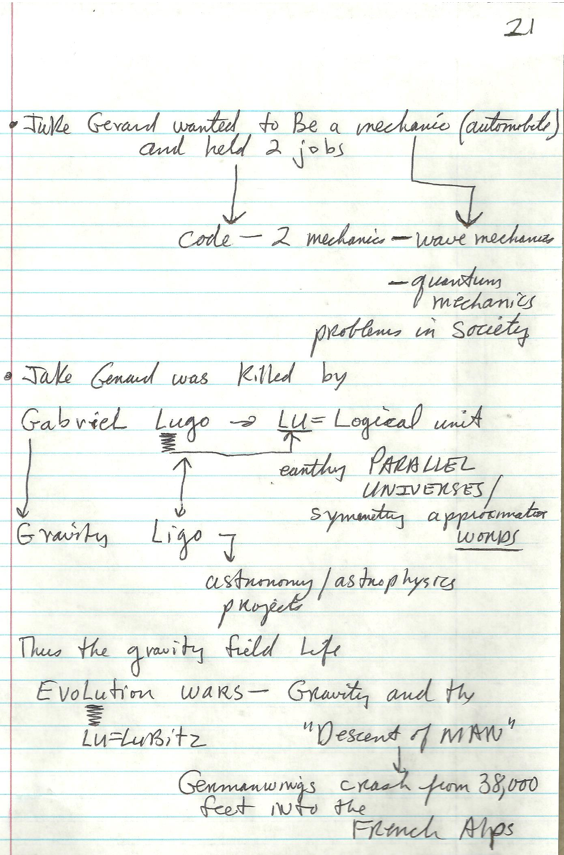 21
• Jake Gerard wanted to Be a mechanic (automobile)
and held 2 jobs
code - 2 mechanics - wave mechanics
- quantum
mechanics
problems in Society
• Jake Gerard was killed by
Gabriel Lugo → LU = Logical unit
earthy PARALLEL
UNIVERSES/
symmetry approximation
WORDS
Gravity Ligo
astronomy/astrophysics
projects
Thus the gravity field Life
EvoLution WARS - Gravity and the
LU=LuBitz "Descent of MAN"
Germanwings crash from 38,000
feet into the
French Alps